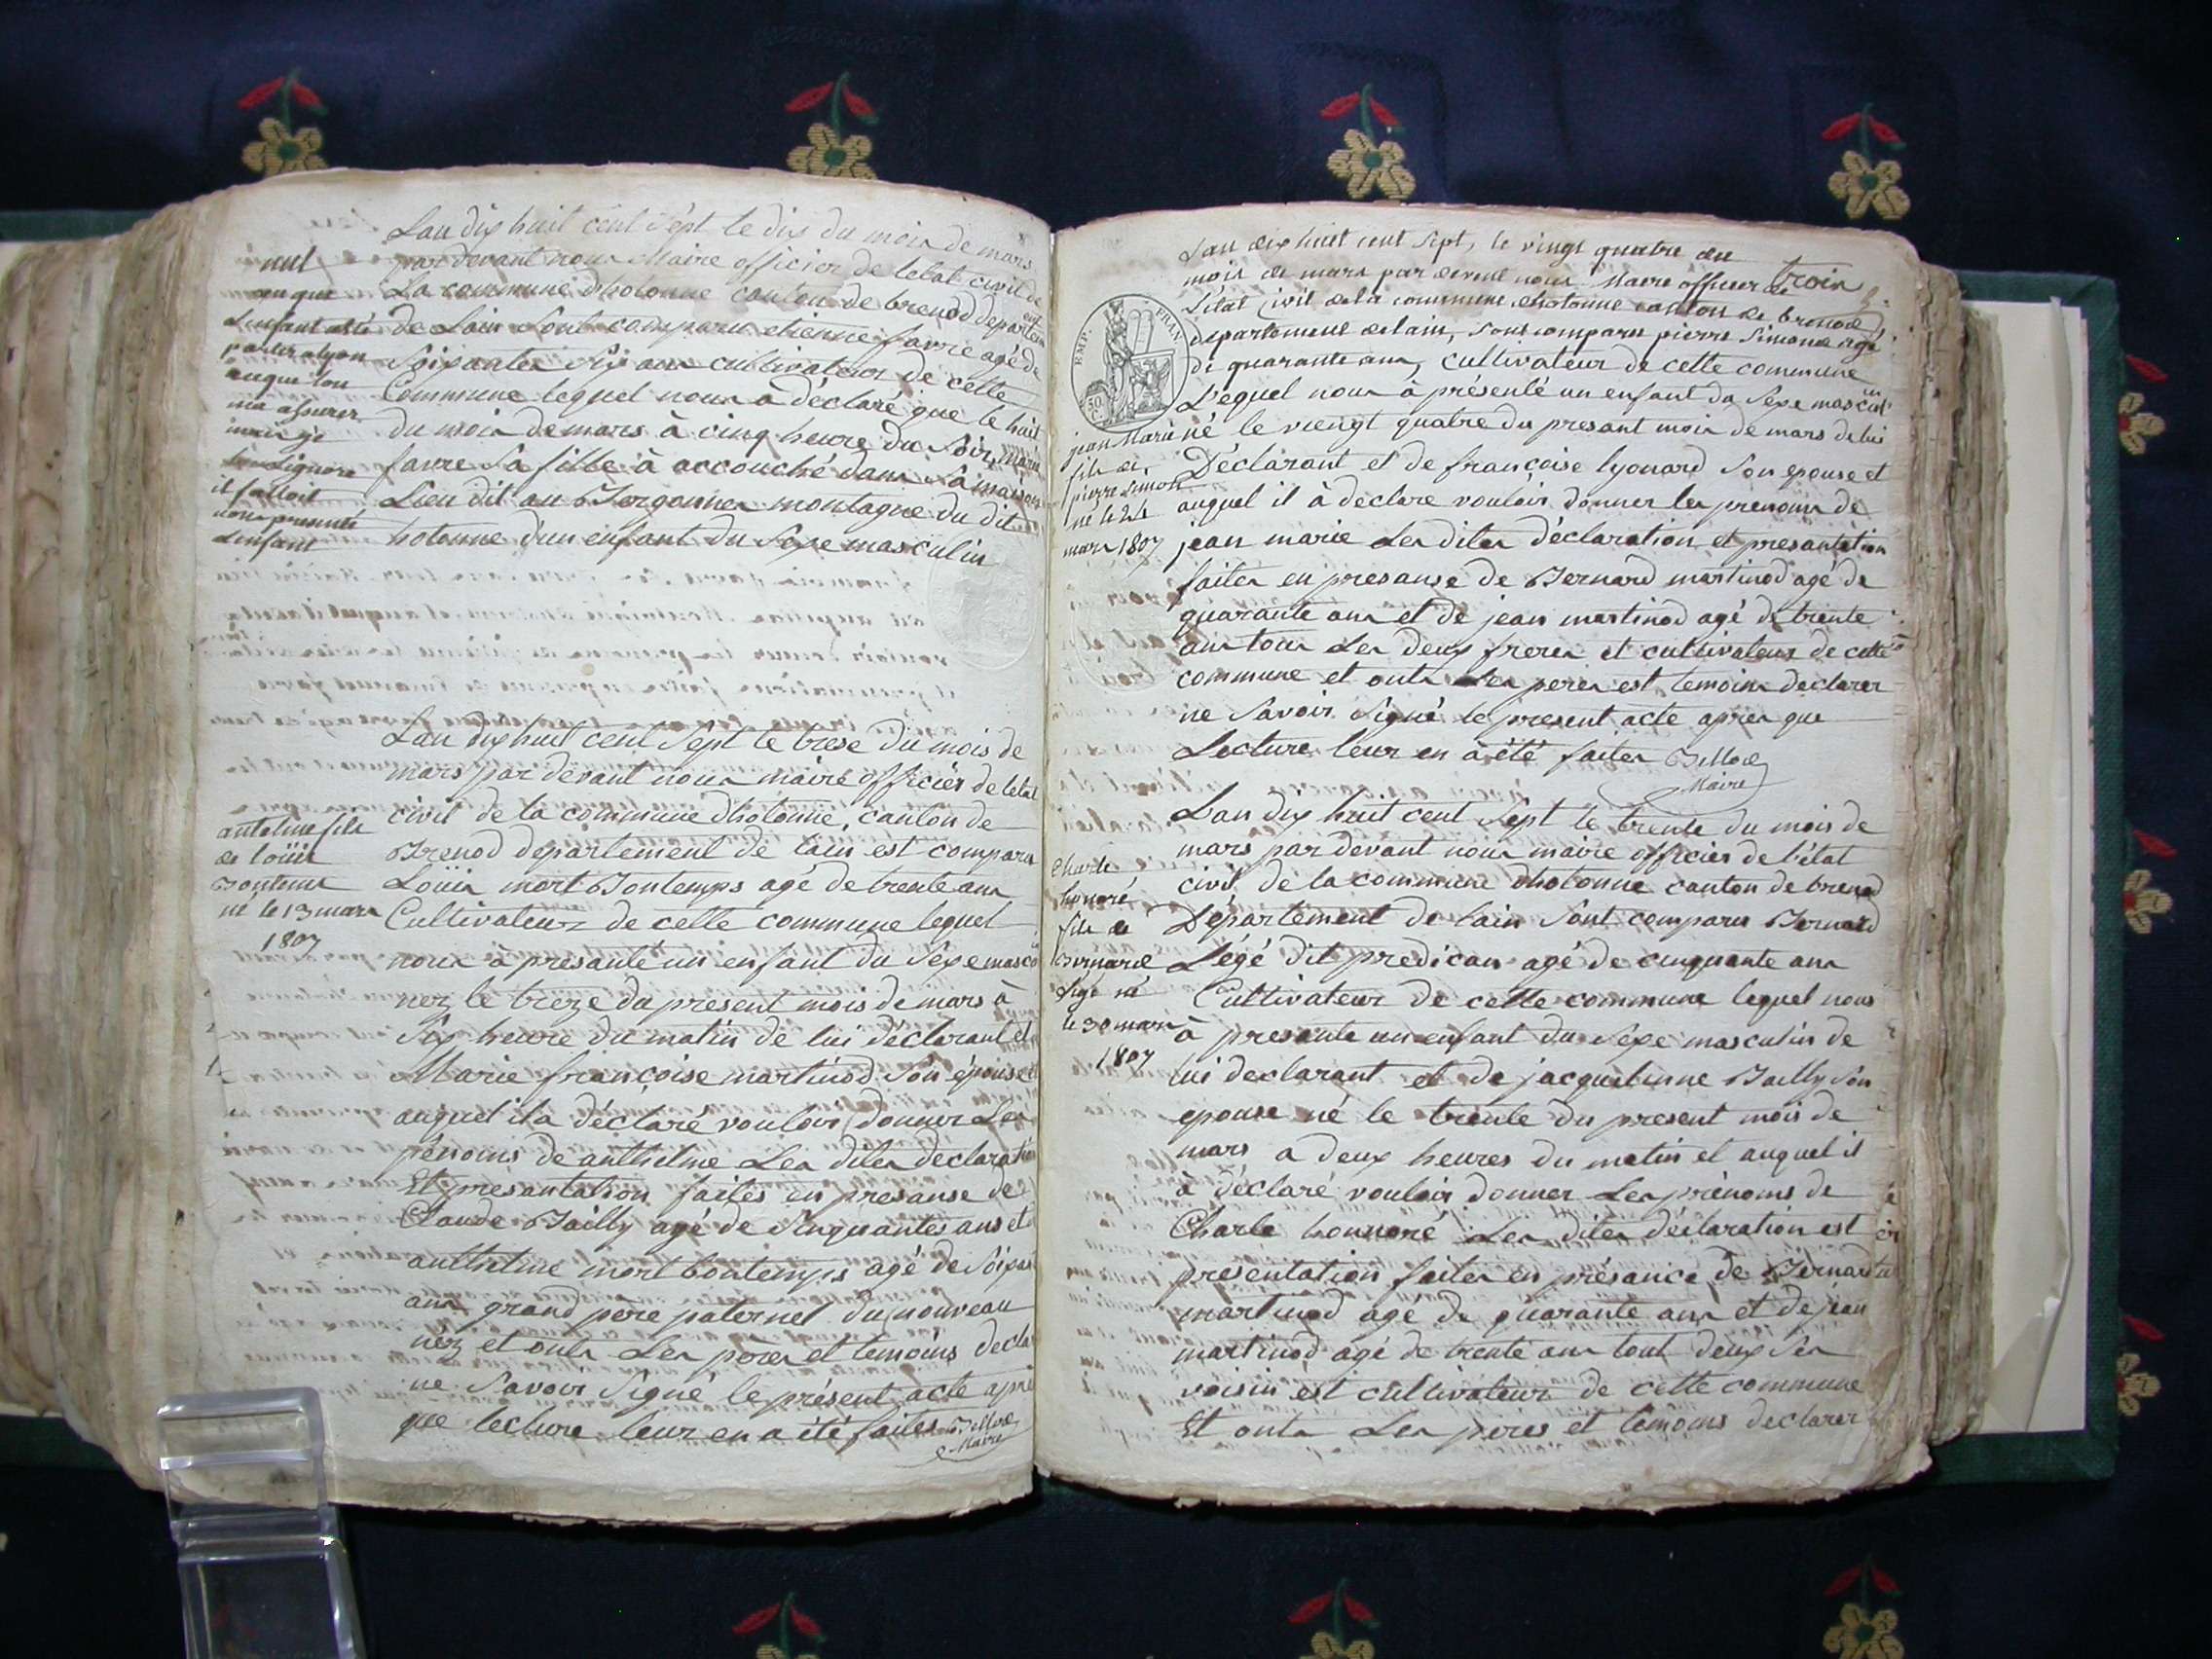 Lan dix huit cent Sept le dix du mois de mars
par devant nous Maire officier de letat civil de
La commune dhotonne canton de brenod departem ent
de Lain Sont comparu etienne favre agé de
Soixantes Six ans cultivateur de cette
Commune lequel nous a déclaré que le huit
du mois de mars à cinq heure du Soir, marie
favre Sa fille à accouché dans Sa maison
Lieu dit au Bergonnes montagne du dit
hotonne d'un enfant du Sexe masculin
nul
Lenfant
porter a lyon
ma assurer
il falloit
Lenfant
Lan dix huit cent Sept le trese du mois de
mars par devant nous maire officiér de letat
civil de la commune dhotonne, canton de
Brenod departement de Lain est comparu
Loüis mort Bontemps agé de trente ans
Cultivateur de cette commune lequel
nous à presanté un enfant du Sexe masc
nez le treze du present mois de mars à
Six heure du matin de lui déclarant et
Marie françoise martinod Son épouse et
auquel il a déclaré vouloir donner Les
pénoms de anthelme Les dites declaratio
Et presantation faites en presanse de
Claude Bailly agé de Sinquantes ans et
anthelme mort bontemps agé de Soixan
ans grand pere paternel du nouveau
néz et onts Les pères et temoins decla
ne Savoir Signé le présent acte aprè
que lecture leur en a été faites Billiod
Maire
antelme fils
de loüis
Bontems
né le 13 mars
1807
trois
Lan dix huit cent Sept, le vingt quatre du
mois de mars par devent nous Maire officier de
L'état Civil de la commune dhotonne canton de brenod
departement de lain, sont comparu pierre Simond agé
de quarante ans, cultivateur de cette commune
Lequel nous à présenté un enfant du Sexe mascul in
né le vieingt quatre du presant mois de mars de lui
Déclarant et de françoise lyonard Son epouse et
auquel il à declare vouloir donner les prenoms de
jean marie Les dites déclaration et presantation
faites en presanse de Bernard martinod agé de
quarante ans et de jean martinod agé de trente
ans tous Les deux freres et cultivateur de cette
commune et onts Les peres est temoins declarer
ne Savoir Signé le present acte apres que
Lecture leur en à été faites Billiod
Maire
EMP. FRAN
50
C.
jean Marie
fils de
pierre Simon
né le 24
mars 1807
Lan dix huit cent Sept le trente du mois de
mars par devant nous maire officier de l'état
civil de la commune dhotonne canton de brenod
Département de lain Sont comparu Bernard
Légé dit predican agé de cinquante ans
Cultivateur de cette commune lequel nous
à presente un enfant du Sexe masculin de
lui declarant et de jacquelinne Bailly Son
epouse né le trente du present mois de
mars a deux heures du matin et auquel il
à déclaré vouloir donner Les prénoms de
Charle honnoré Les dites déclaration est
presentation faites en présance de Bernard
martinod agé de quarante ans et de jean
martinod agé de trente ans tout deux Ses
voisin est cultivateur de cette commune
Et onts Les pères et temoins declarer
Charle
honoré
fils de
Bernard
Lege né
le 30 mars
1807